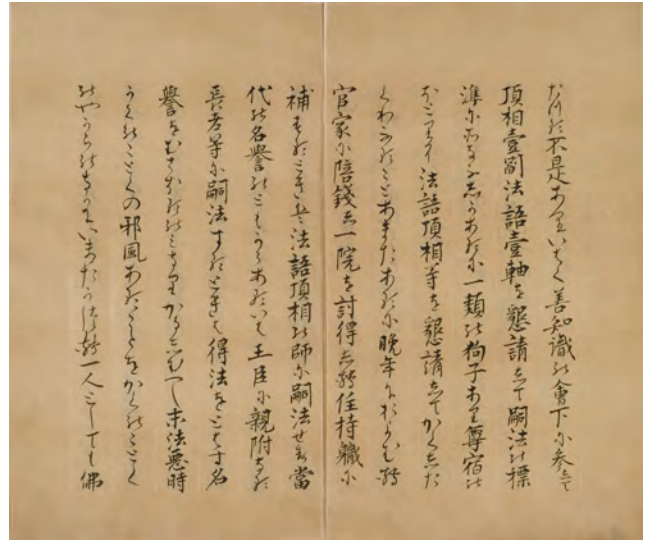 不是ありいはく善知識の會下に参して
頂相壹副法語壹軸を懇請して嗣法の標
準にそなふしかあるに一類の狗子あり尊宿の
ほとりに法語頂相等を懇請してかくした
くわふることあまたあるに晩年におよむて
官家に陪錢し一院を討得して住持職に
補するときは法語頂相の師に嗣法せす當
代の名譽のともからあるいは王臣に親附なる
長老等に嗣法するときは得法をとはす名
譽をむさほるのみなりかなしむへし末法惡時
かくのことくの邪風あることをかくのことく
のやからのなかにいまたかつて一人としても佛